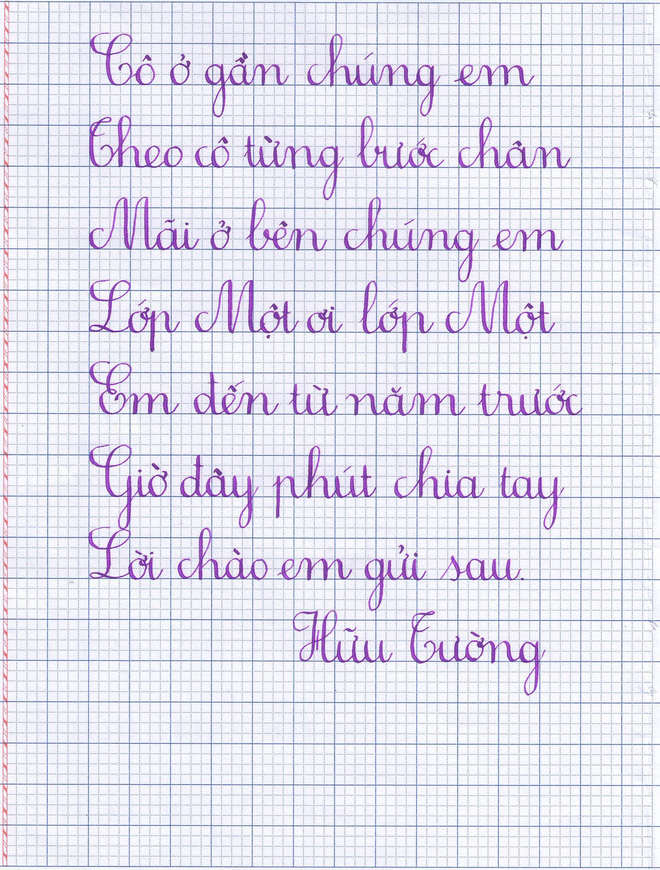 Cô ở gần chúng em
Theo cô từng bước chân
Mãi ở bên chúng em
Lớp Một ơi lớp Một
Em đến từ năm trước
Giờ đây phút chia tay
Lời chào em gửi sau.
Hữu Tường